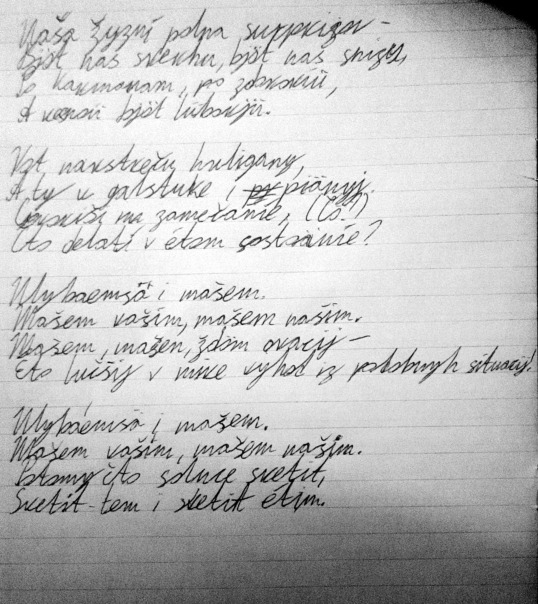 Naša žyzní polna surprizov –
Bjöt nas sverhu, bjöt nas snizu,
Po karmanam, po
A kovoi bjöt lübovjü.
Vot navstreču huligany,
A ty v galstuke i piänyj.
mi zamečanie, (Čö?)
Čto delatí v étom sostoänie?
Ulybaemsä i mašem.
Mašem vašim, mašem našim.
Mašem, mašem, ždöm ovacij –
Éto lučšij v mire vyhod iz podobnyh situacij!
Ulybaemsä i mašem.
Mašem vašim, mašem našim.
Potomy čto solnce svetit,
Svetit tem i svetit étim.